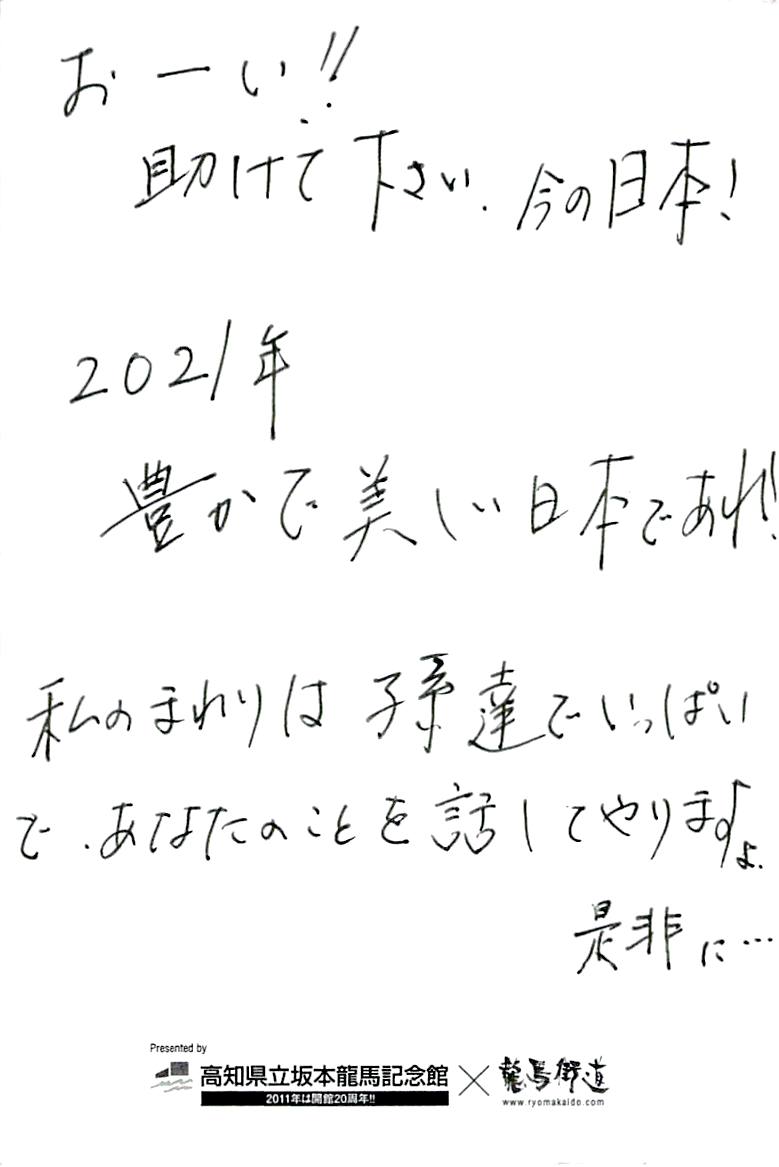 おーい!!
助けて下さい. 今の日本!
2021年
豊かで美しい日本であれ!!
私のまわりは孫達でいっぱい
で、あなたのことを話してやりますよ.
是非に…
Presented by
高知県立坂本龍馬記念館 × 龍馬街道
2011年は開館20周年!!
www.ryomakaido.com